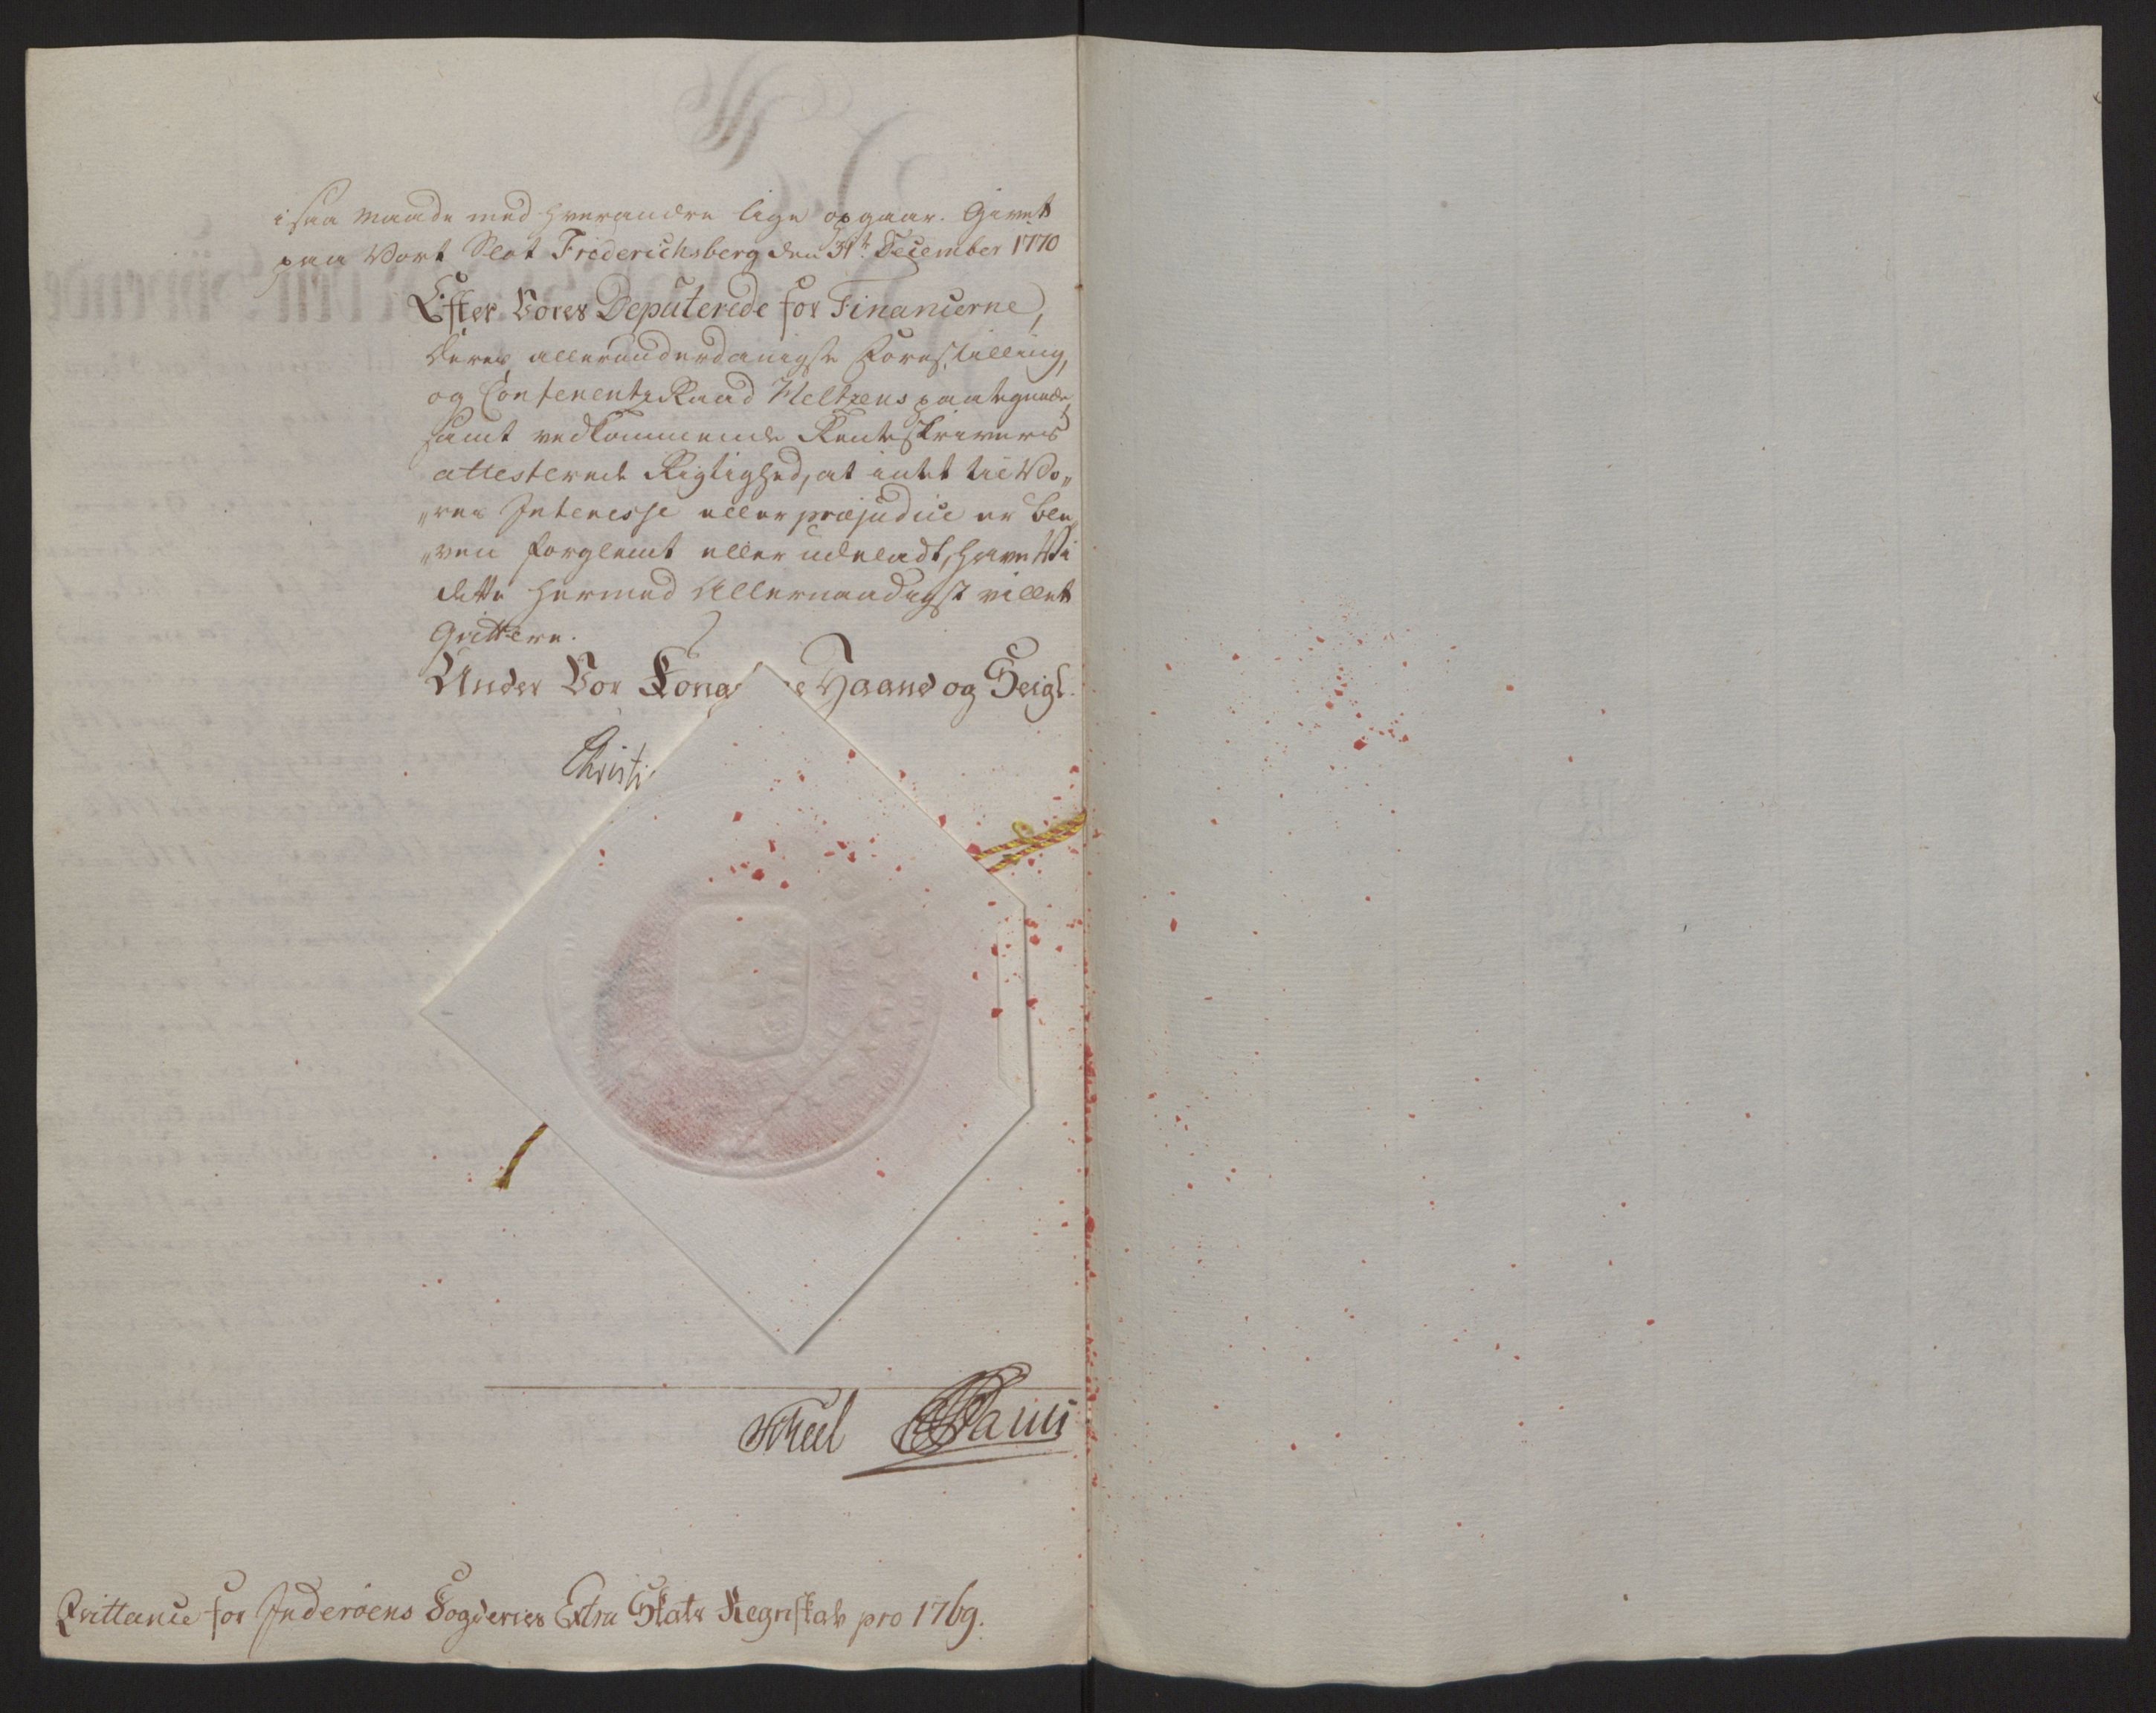 i saa Maade med hverandre lige opgaar. Givet
paa Vort Slot Friderichsberg den 31t. December 1770
Efter Vores Deputerede for Financerne,
Deres allerunderdanigste Forestilling,
og Conferentz Raad Heltzens paategnede,
samt vedkommende Renteskrivers
attesterede Rigtighed, at intet til Vo„
„res Interesse eller præjudice er ble„
„ven forglemt eller udeladt, have Vi
dette hermed Allernaadigst villet
Qvittere.
Under Vor Kong  ge Haand og Seigl.
Christi
Scheel
Qvittance for Inderöens Fogderies Extra Skats Regnskab pro 1769.